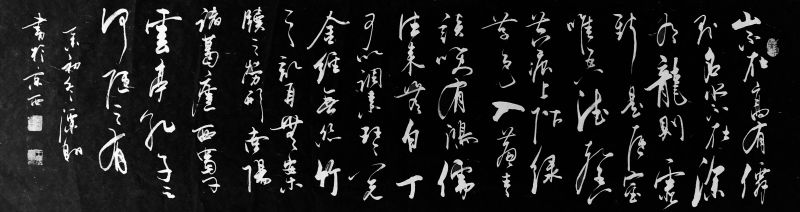 山不在高有僊
則名水不在深
有龍則靈
斯是陋室
惟吾德馨
苔痕上階綠
草色入簾青
談笑有鴻儒
往来無白丁
可以調素琴閱
金經無絲竹
之亂耳無案
牘之勞形南陽
諸葛廬西蜀子
雲亭孔子云
何陋之有
初冬
書於